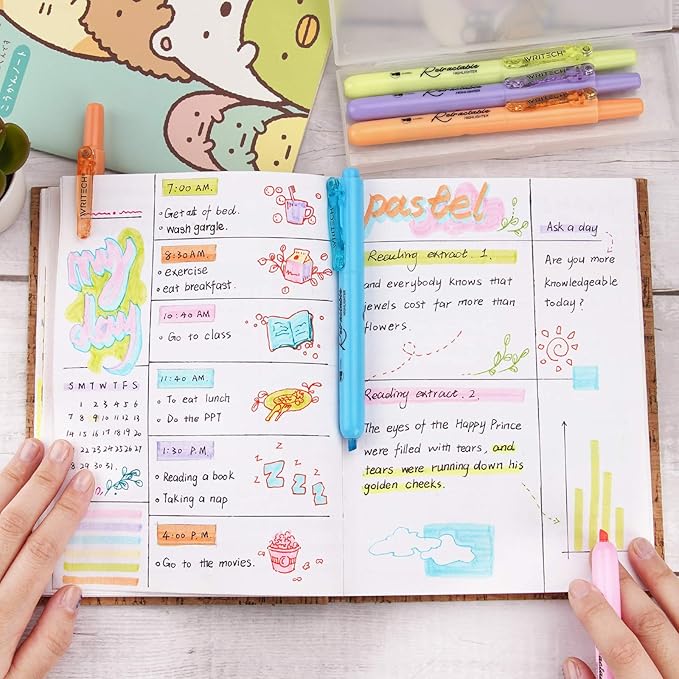 WRITECH
Retractable
HIGHLIGHTER
WRITECH
Retractable
HIGHLIGHTER
WRITECH
Retractable
HIGHLIGHTER
こうかんノート
WRITECH
my
day
S M T W T F S
1 2 3 4 5 6
7 8 9 10 11 12 13
14 15 16 17 18 19 20
21 22 23 24 25 26 27
28 29 30 31
7:00 AM.
Get out of bed.
wash gargle.
8:30 AM.
exercise
eat breakfast.
10:40 AM
Go to class
11:40 AM
To eat lunch
Do the PPT
1:30 P.M.
Reading a book
Taking a nap
z z z z
4:00 P.M.
Go to the movies.
WRITECH
Retractable
HIGHLIGHTER
pastel
Reading extract. 1.
and everybody knows that
jewels cost far more than
flowers.
Reading extract. 2.
The eyes of the Happy Prince
were filled with tears, and
tears were running down his
golden cheeks.
Ask a day
Are you more
knowledgeable
today?